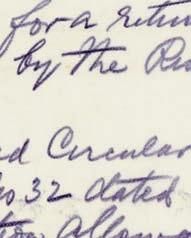 for a return
by the Re
ed Circular
No 32 dated
tion Allowa